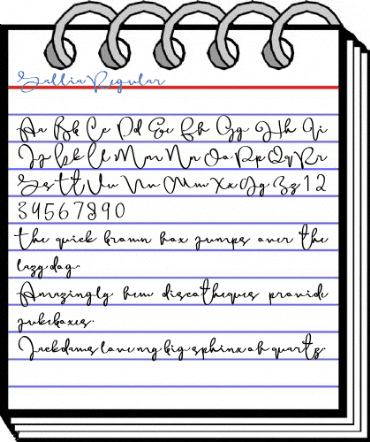 Sallia Regular
Aa Bb Cc Dd Ee Ff Gg Hh Ii
Jj Kk Ll Mm Nn Oo Pp Qq Rr
Ss Tt Uu Vv Ww Xx Yy Zz 1 2
3 4 5 6 7 8 9 0
the quick brown fox jumps over the
lazy dog.
Amazingly few discotheques provide
jukeboxes.
Jackdaws love my big sphinx of quartz.